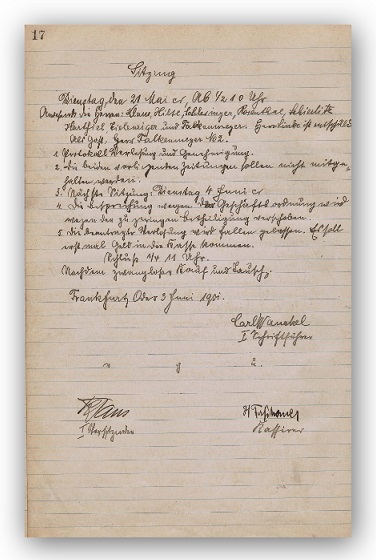 17
Sitzung
Dienstag, den 21 Mai cr, Ab. 1/2 10 Uhr
Anwesend die Herren: Klaus, Hilse, Schlesinger, Rosenthal,
Hartfiel und Falkenmeyer. ist entschuld.
Als Gast, Herr Falkenmeyer No 2.
1. Protokoll Verlesung und Genehmigung.
2. Die beiden vorliegenden Zeitungen sollen nicht mitge-
halten werden.
3. Nächste Sitzung: Dienstag 4 Juni cr
4. Die Besprechung wegen der Geschäftsordnung wird
wegen der zu geringen Betheiligung verschoben.
5. Die beantragte Verlosung wird fallen gelassen. Es soll
erst mal Geld in die Kasse kommen.
Schluß 1/4 11 Uhr.
Nachdem zwangloser Kauf und Tausch.
Frankfurt, Oder 3 Juni 1901.
Carl Wanckel
I Schriftführer
v. g. u.
Klaus
I Vorsitzender
Kassirer